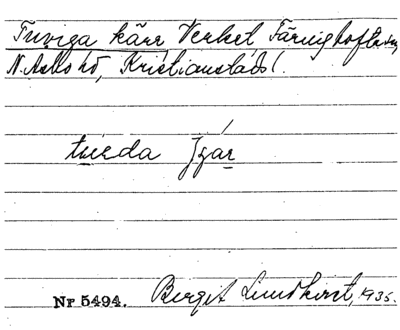 Tuviga kärr Verket, Färingtofta sn,
N. Åsbo hd, Kristianstads l.
tueda
Nr 5494. Bergit Lundkvist, 1935.